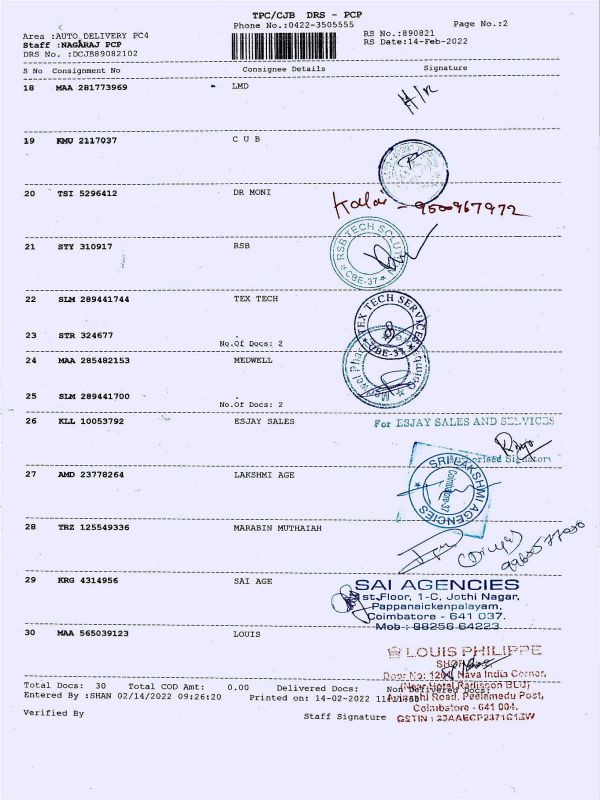 TPC/CJB DRS - PCP
Phone No.:0422-3505555
Page No.:2
Area :AUTO DELIVERY PC4
RS No.:890821
Staff :NAGARAJ PCP
RS Date:14-Feb-2022
DRS No. :DCJB89082102
S No Consignment No Consignee Details Signature
18 MAA 281773969 LMD
H/R
19 KMU 2117037 C U B
20 TSI 5296412 DR MONI
Kalai - 9500967972
21 STY 310917 RSB
RSB TECH SOLUT
* CBE-37 *
22 SLM 289441744 TEX TECH
TEX TECH SERVICES
* CBE-37 *
23 STR 324677
No.Of Docs: 2
24 MAA 285482153 MEDWELL
25 SLM 289441700
No.Of Docs: 2
26 KLL 10053792 ESJAY SALES
For ESJAY SALES AND SERVICES
Authorised Signatory
27 AMD 23778264 LAKSHMI AGE
SRI LAKSHMI AGENCIES
Coimbatore-37
28 TRZ 125549336 MARABIN MUTHAIAH
29 KRG 4314956 SAI AGE
SAI AGENCIES
1st,Floor, 1-C, Jothi Nagar,
Pappanaickenpalayam,
Coimbatore - 641 037.
Mob : 98256 64223
30 MAA 565039123 LOUIS
LOUIS PHILIPPE
Nava India Corner,
(Near Hotel Radisson BLU)
Avinashi Road, Peelamedu Post,
Coimbatore - 641 004.
Total Docs: 30 Total COD Amt: 0.00 Delivered Docs: Non Delivered Docs:
Entered By :SHAN 02/14/2022 09:26:20 Printed on: 14-02-2022
Verified By Staff Signature